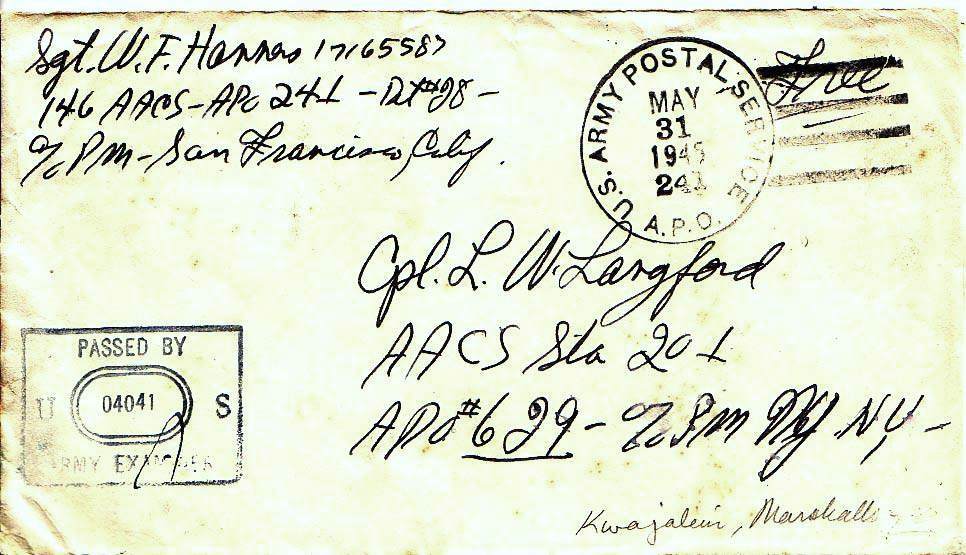 Sgt. W. F. Hannas 17165587
146 AACS - APO 241 - Det #28 -
℅ PM - San Francisco, Calif.
U.S. ARMY POSTAL SERVICE
MAY
31
1945
241
A.P.O.
Free
Cpl. L. W. Langford
AACS Sta 201
APO #629 - ℅ PM NY NY -
PASSED BY
U 04041 S
ARMY EXAMINER
Kwajalein, Marshalls